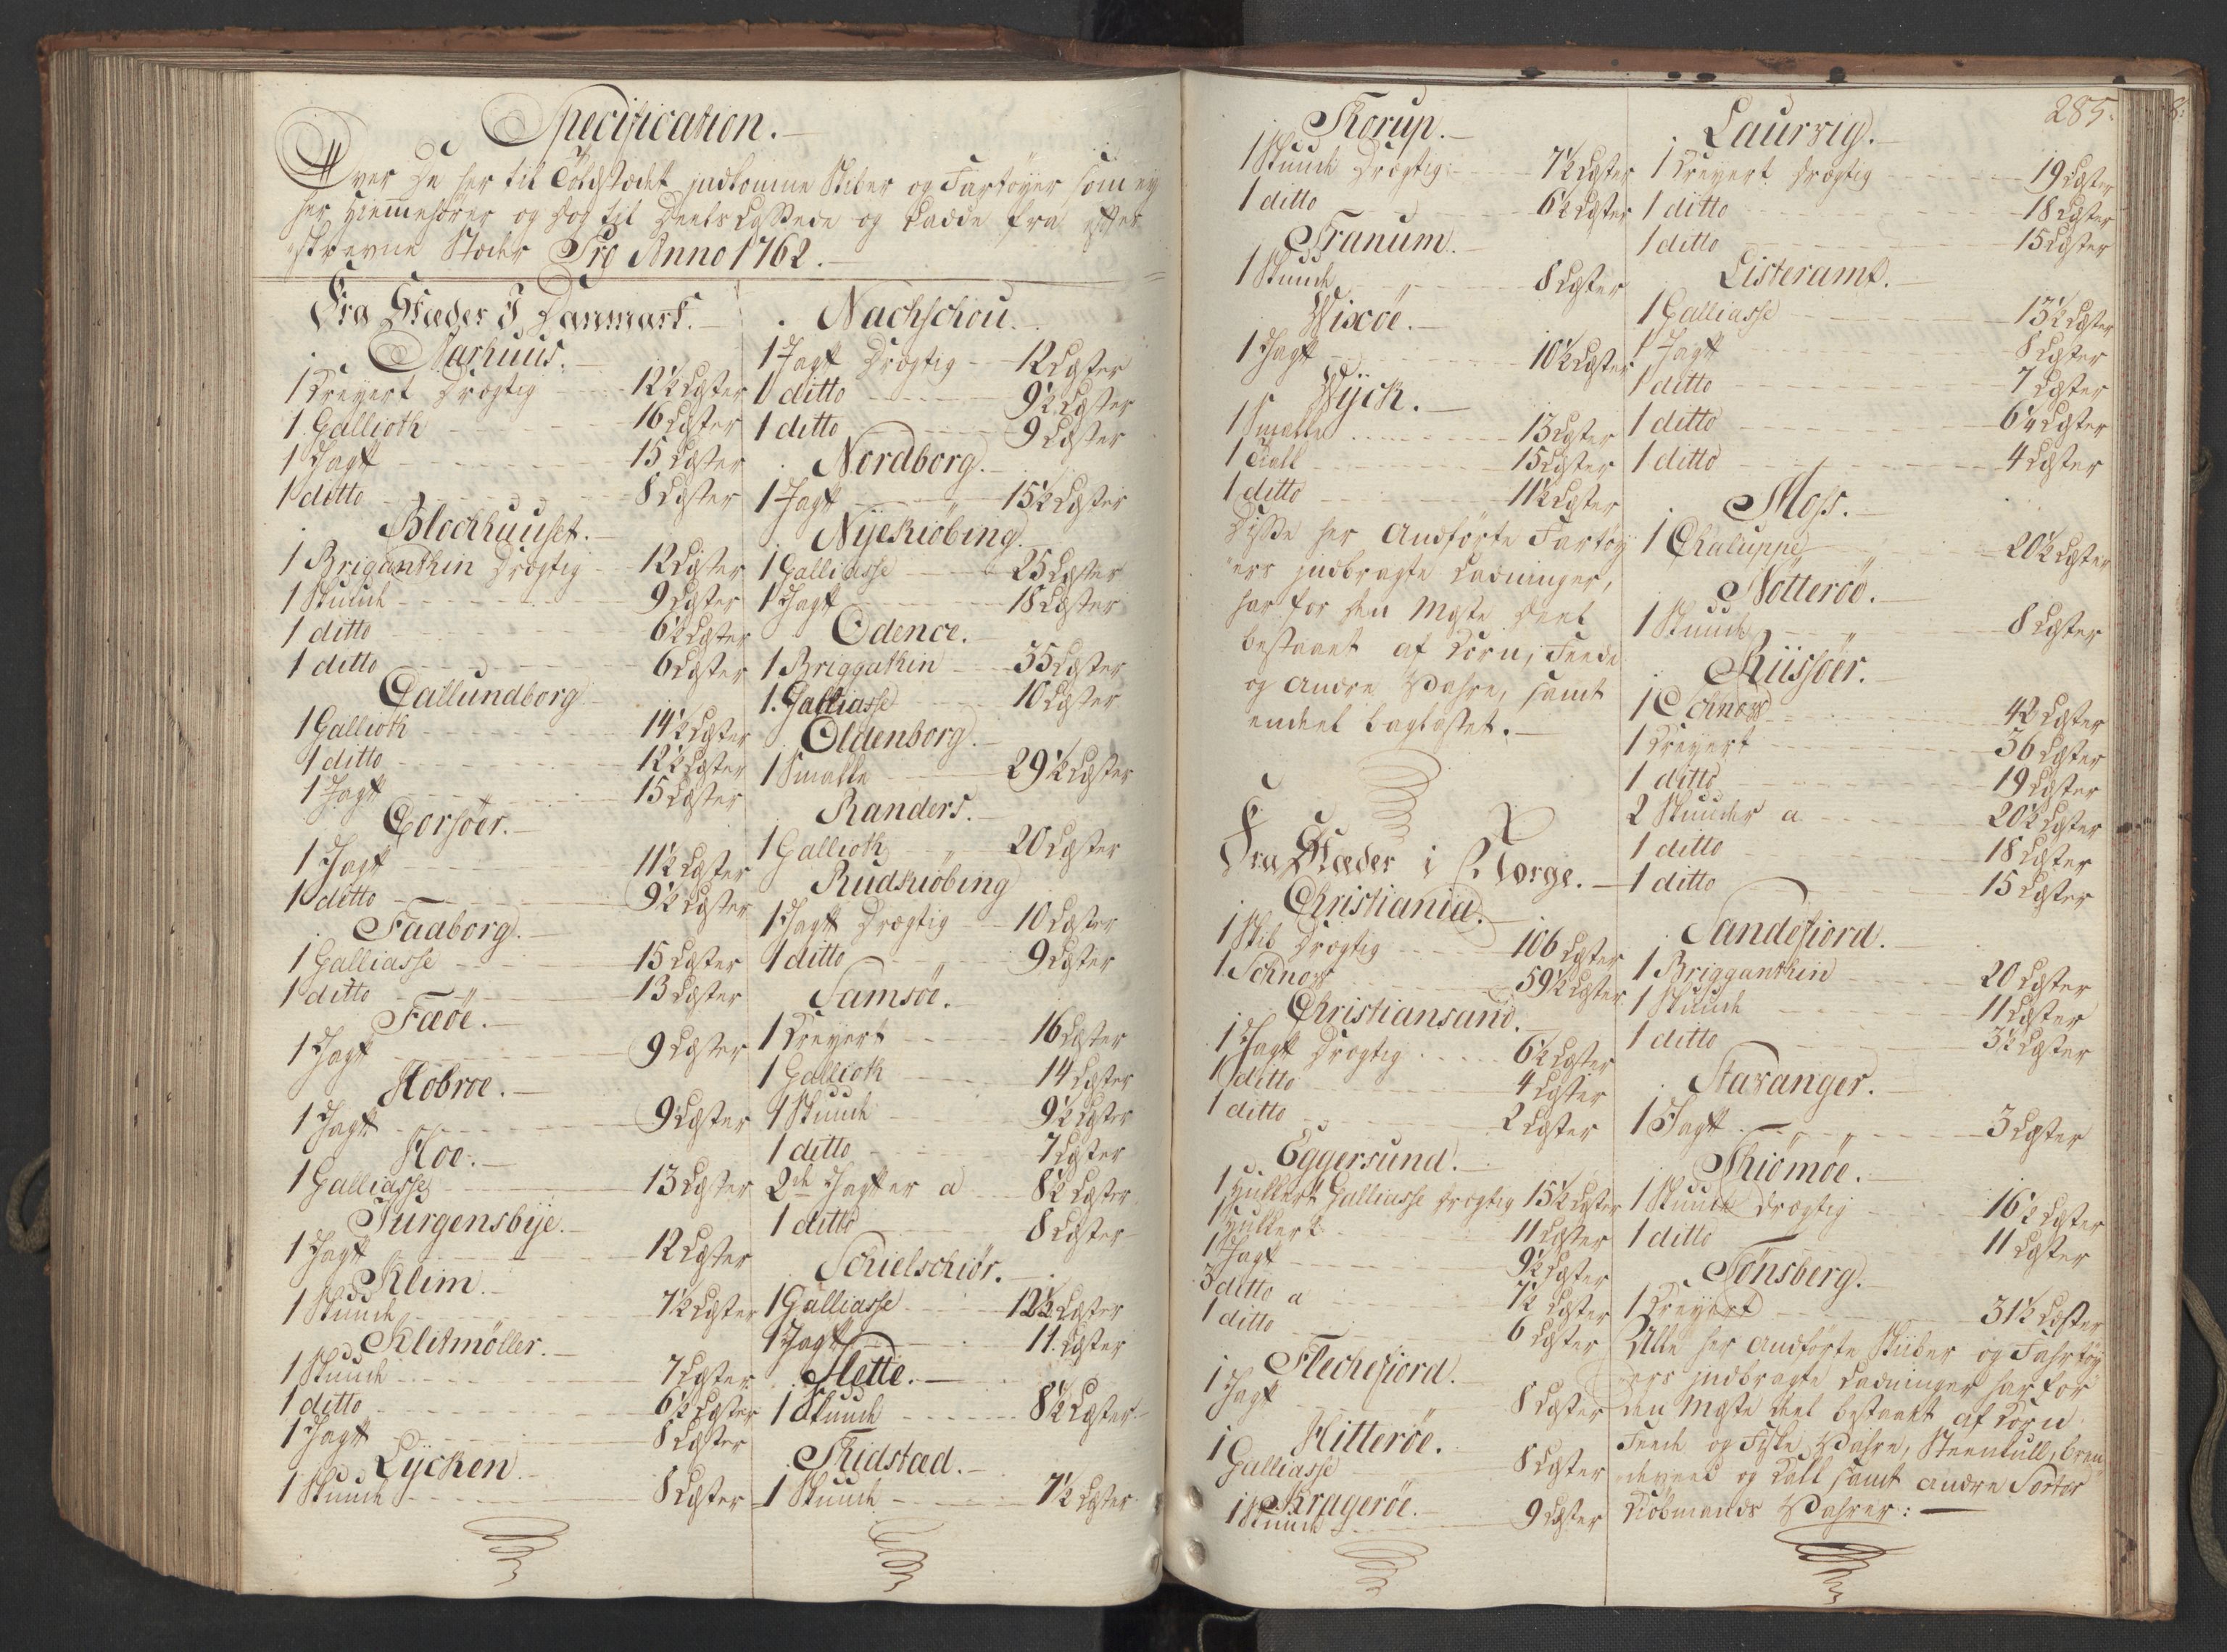 Specification.
Over De her til Toldstædet indkomne Skiber og Fartøyer som ey
her Hiemmehører og dog til Deels Lossede og Ladde fra efter
skrevne Stæder Pro Anno 1762.
Fra Stæder I Danmark.
Aarhuus.
1 Kreyert Drægtig 12½ Læster
1 Gallioth 16 Læster
1 Jagt 15 Læster
1 ditto 8 Læster
Blochhuuset.
1 Briganthin Drægtig 12 Læster
1 Skuude 9 Læster
1 ditto 6½ Læster
1 ditto 6 Læster
Callundborg
1 Gallioth 14½ Læster
1 ditto 12½ Læster
1 Jagt 15 Læster
Corsöer.
1 Jagt 11½ Læster
1 ditto 9½ Læster
Faaborg.
1 Galliasse 15 Læster
1 ditto 13 Læster
Fæöe.
1 Jagt 9 Læster
Hobroe.
1 Jagt 9 Læster
Hoe.
1 Galliasse 13 Læster
Jürgensbÿe.
1 Jagt 12 Læster
Klim.
1 Skuude 7½ Læster
Klitmöller.
1 Skuude 7 Læster
1 ditto 6½ Læster
1 Jagt 8 Læster
Lÿcken
1 Skuude 8 Læster
Nachschou.
1 Jagt Drægtig 12 Læster
1 ditto 9½ Læster
1 ditto 9 Læster
Nordborg.
1 Jagt 15½ Læster
Nÿekiöbing
1 Galliasse 25 Læster
1 Jagt 18 Læster
Odence.
1 Briggathin 35 Læster
1 Galliasse 10 Læster
Oldenborg.
1 Smakke 29½ Læster
Randers.
1 Gallioth 20 Læster
Rudkiöbing
1 Jagt Drægtig 10 Læster
1 ditto 9 Læster
Samsöe.
1 Kreyert 16 Læster
1 Gallioth 14 Læster
1 Skuude 9½ Læster
1 ditto 7 Læster
2de Jagter a 8½ Læster
1 ditto 8 Læster
Schielschiör.
1 Galliasse 12½ Læster
1 Jagt 11 Læster
Slette.
1 Skuude 8½ Læster
Thidstæd.
1 Skuude 7½ Læster
285.
Torup.
1 Skuude Drægtig 7½ Læster
1 ditto 6½ Læster
Tranum.
1 Skuude 8 Læster
Wixöe.
1 Jagt 10½ Læster
Wÿck.
1 Smakke 13 Læster
1 Kall 15 Læster
1 ditto 11½ Læster
Disse her Andførte Fartøy
ers indbragte Ladninger,
har for den Mæste Deel
bestaaet af Korn, Feede
og Andre Wahre, samt
endeel Baglastet.
Fra Stæder i Norge.
Christiania.
1 Skib Drægtig 106 Læster
1 Schnow 59½ Læster
Christiansand.
1 Jagt Drægtig 6½ Læster
1 ditto 4 Læster
1 ditto 2 Læster
Eggersund.
1 Hukkert Galliasse Drægtig 15½ Læster
1 Hukkert 11 Læster
1 Jagt 9½ Læster
3 ditto a 7½ Læster
1 ditto 6 Læster
Flechefiord.
1 Jagt 8 Læster
Hitteröe.
1 Galliasse 8 Læster
Krageröe.
1 Skuude 9 Læster
Laurvig.
1 Kreyert Drægtig 19 Læster
1 ditto 18 Læster
1 ditto 15 Læster
Listeramt.
1 Galliasse 13½ Læster
1 Jagt 8 Læster
1 ditto 7 Læster
1 ditto 6¼ Læster
1 ditto 4 Læster
Moss.
1 Chaluppe 20½ Læster
Nötteröe.
1 Skuude 8 Læster
Riisöer.
1 Schnow 42 Læster
1 Kreyert 36 Læster
1 ditto 19 Læster
2 Skuuder a 20½ Læster
1 ditto 18 Læster
1 ditto 15 Læster
Sandefiord.
1 Brigganthin 20 Læster
1 Skuude 11 Læster
1 ditto 3½ Læster
Stavanger.
1 Jagt 3 Læster
Thiömöe.
1 Skuude Drægtig 16½ Læster
1 ditto 11 Læster
Tönsberg.
1 Kreyert 31½ Læster
Alle her Andførte Skiber og Fahrtøy
ers indbragte Ladninger har for
den Mæste Deel bestaaet af Korn
Feede og Fiske Wahre, Steenkull, bræn
deveed og Kalk samt andre Sorter
Kiöbmands Wahrer: